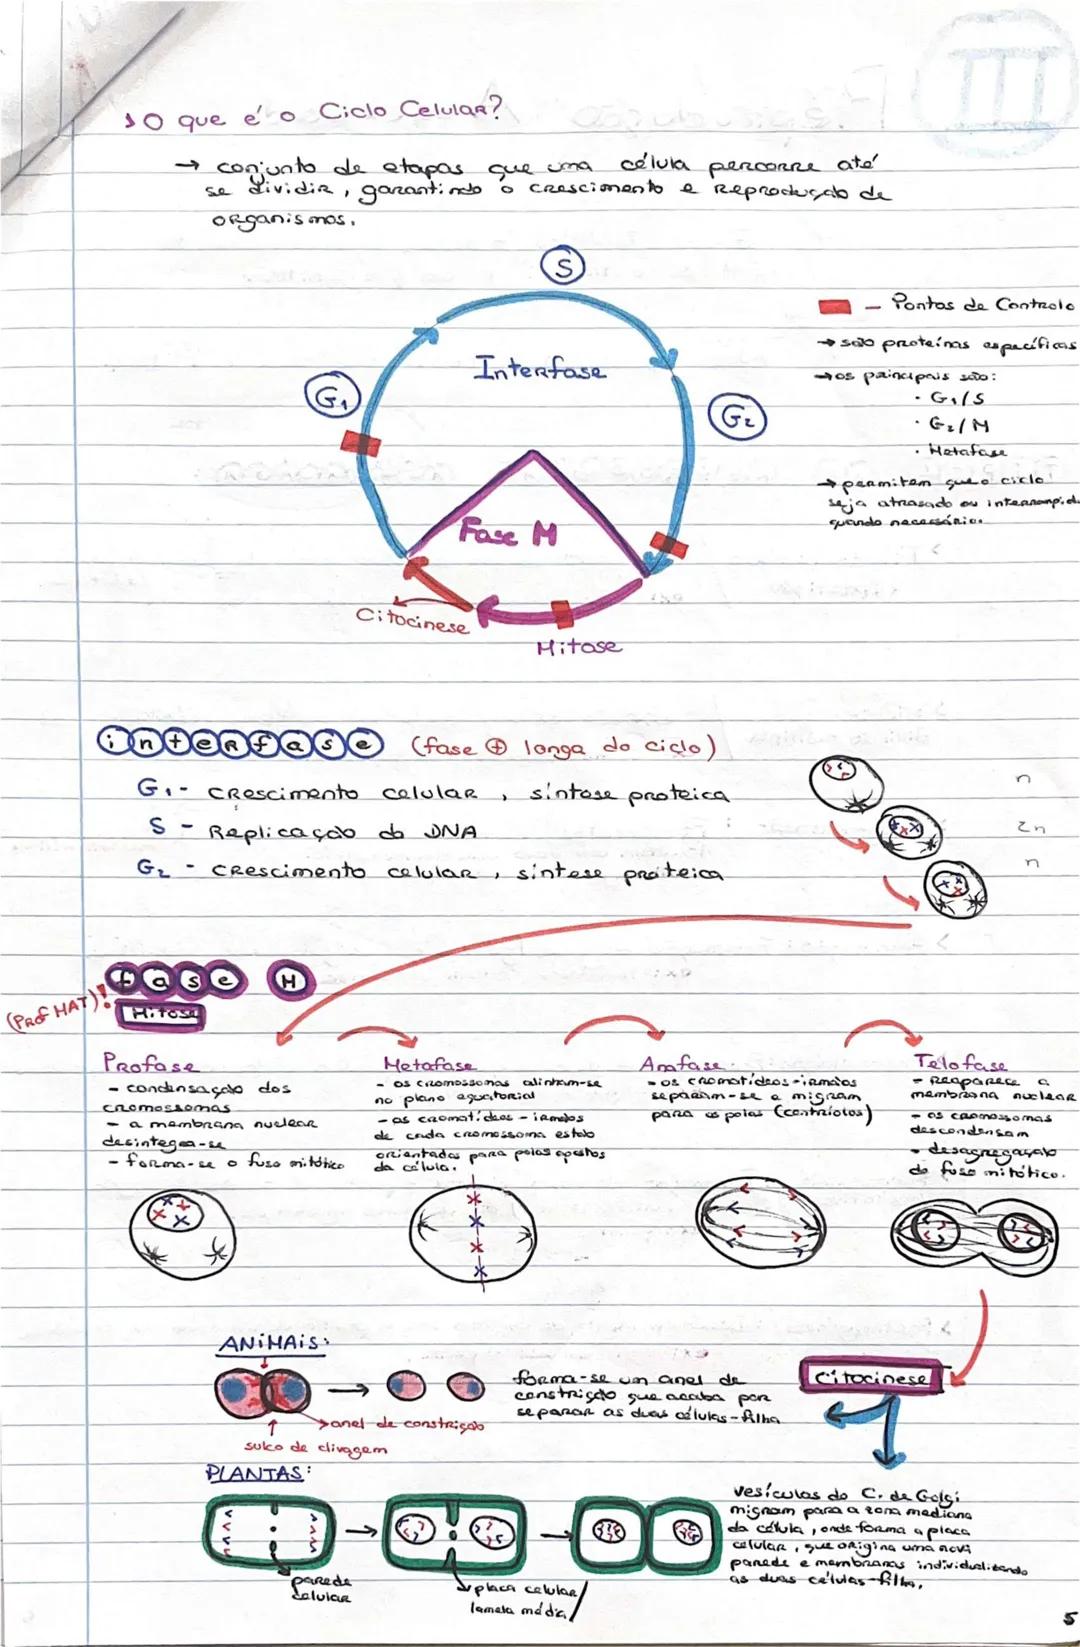 O que é o Ciclo Celular?
→ conjunto de etapas que uma célula percorre até
se dividir, garantindo o crescimento e reprodução de
organismos.
S
G₁
Interfase
G₂
Fase M
Citocinese
Mitose
- Pontos de Controlo
→ são proteínas específicas
→ os principais são:
· G₁/S
· G₂/M
· Metafase
→ permitem que o ciclo
seja atrasado ou interrompido
quando necessário.
interfase (fase ⊕ longa do ciclo)
G₁ - crescimento celular, síntese proteica
n
S - Replicação do DNA
2n
G₂ - crescimento celular, síntese proteica
n
fase M
(Prof MAT)!
Mitose
Profase
- condensação dos
cromossomas
- a membrana nuclear
desintegra-se
- forma-se o fuso mitótico
Metafase
- os cromossomas alinham-se
no plano equatorial
- os cromatídeos-irmãos
de cada cromossoma estão
orientados para polos opostos
da célula.
Anafase
- os cromatídeos-irmãos
separam-se e migram
para os polos (centríolos)
Telofase
- Reaparece a
membrana nuclear
- os cromossomas
descondensam
- desagregação
do fuso mitótico.
ANIMAIS:
anel de constrição
sulco de clivagem
forma-se um anel de
constrição que acaba por
separar as duas células-filha
citocinese
PLANTAS:
parede
celular
placa celular/
lamela média/
vesículas do C. de Golgi
migram para a zona mediana
da célula, onde forma a placa
celular, que origina uma nova
parede e membranas individualizando
as duas células-filha.
5
III